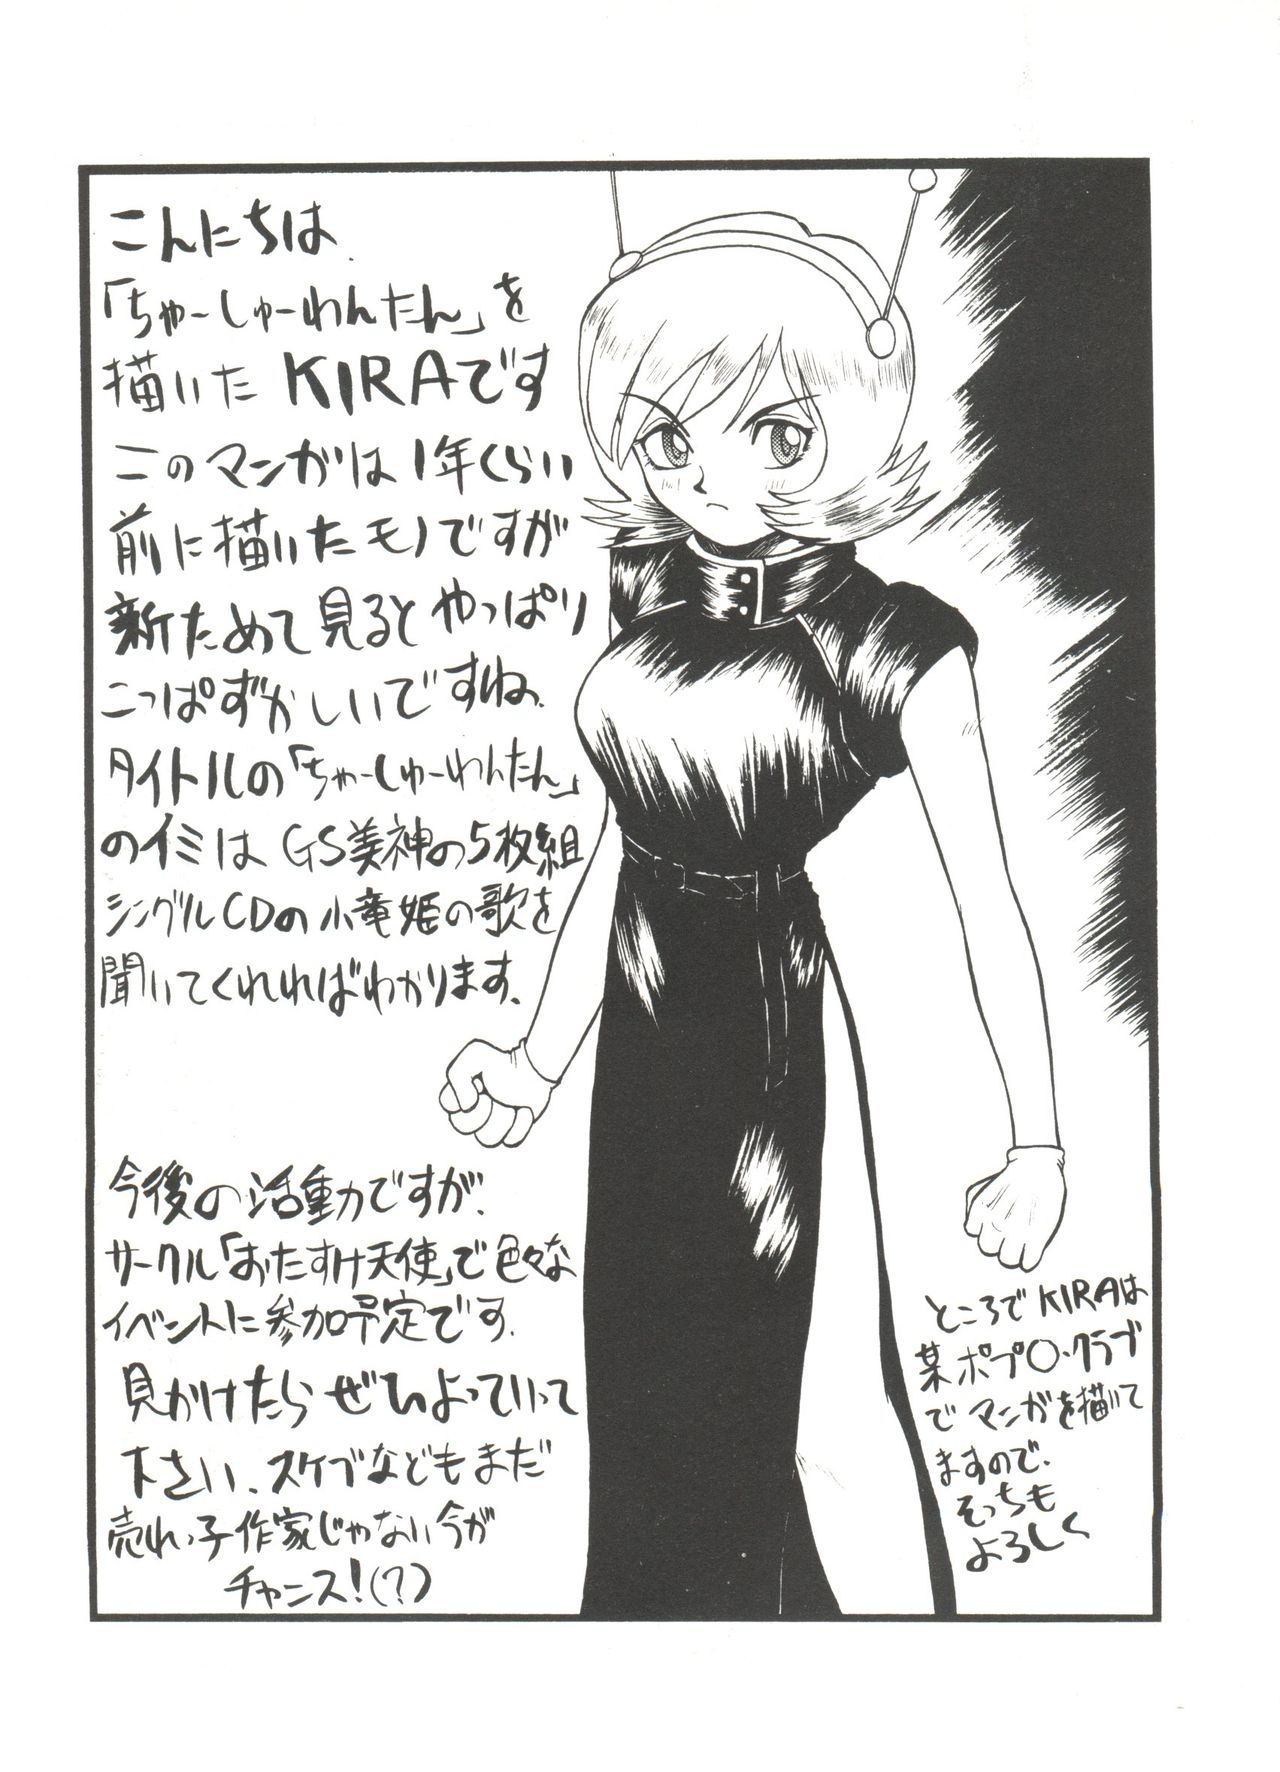 こんにちは、
「ちゃーしゅーわんたん」を
描いた KIRAです
このマンガは1年くらい
前に描いたモノですが
新ためて見るとやっぱり
こっぱずかしいですね。
タイトルの「ちゃーしゅーわんたん」
のイミは GS美神の5枚組
シングルCDの小竜姫の歌を
聞いてくれればわかります。
今後の活動ですが、
サークル「おたすけ天使」で色々な
イベントに参加予定です。
見かけたらぜひよっていって
下さい、スケブなどもまだ
売れっ子作家じゃない今が
チャンス!(?)
ところで KIRAは
某ポプ〇・クラブ
でマンガを描いて
ますので、
そっちも
よろしく